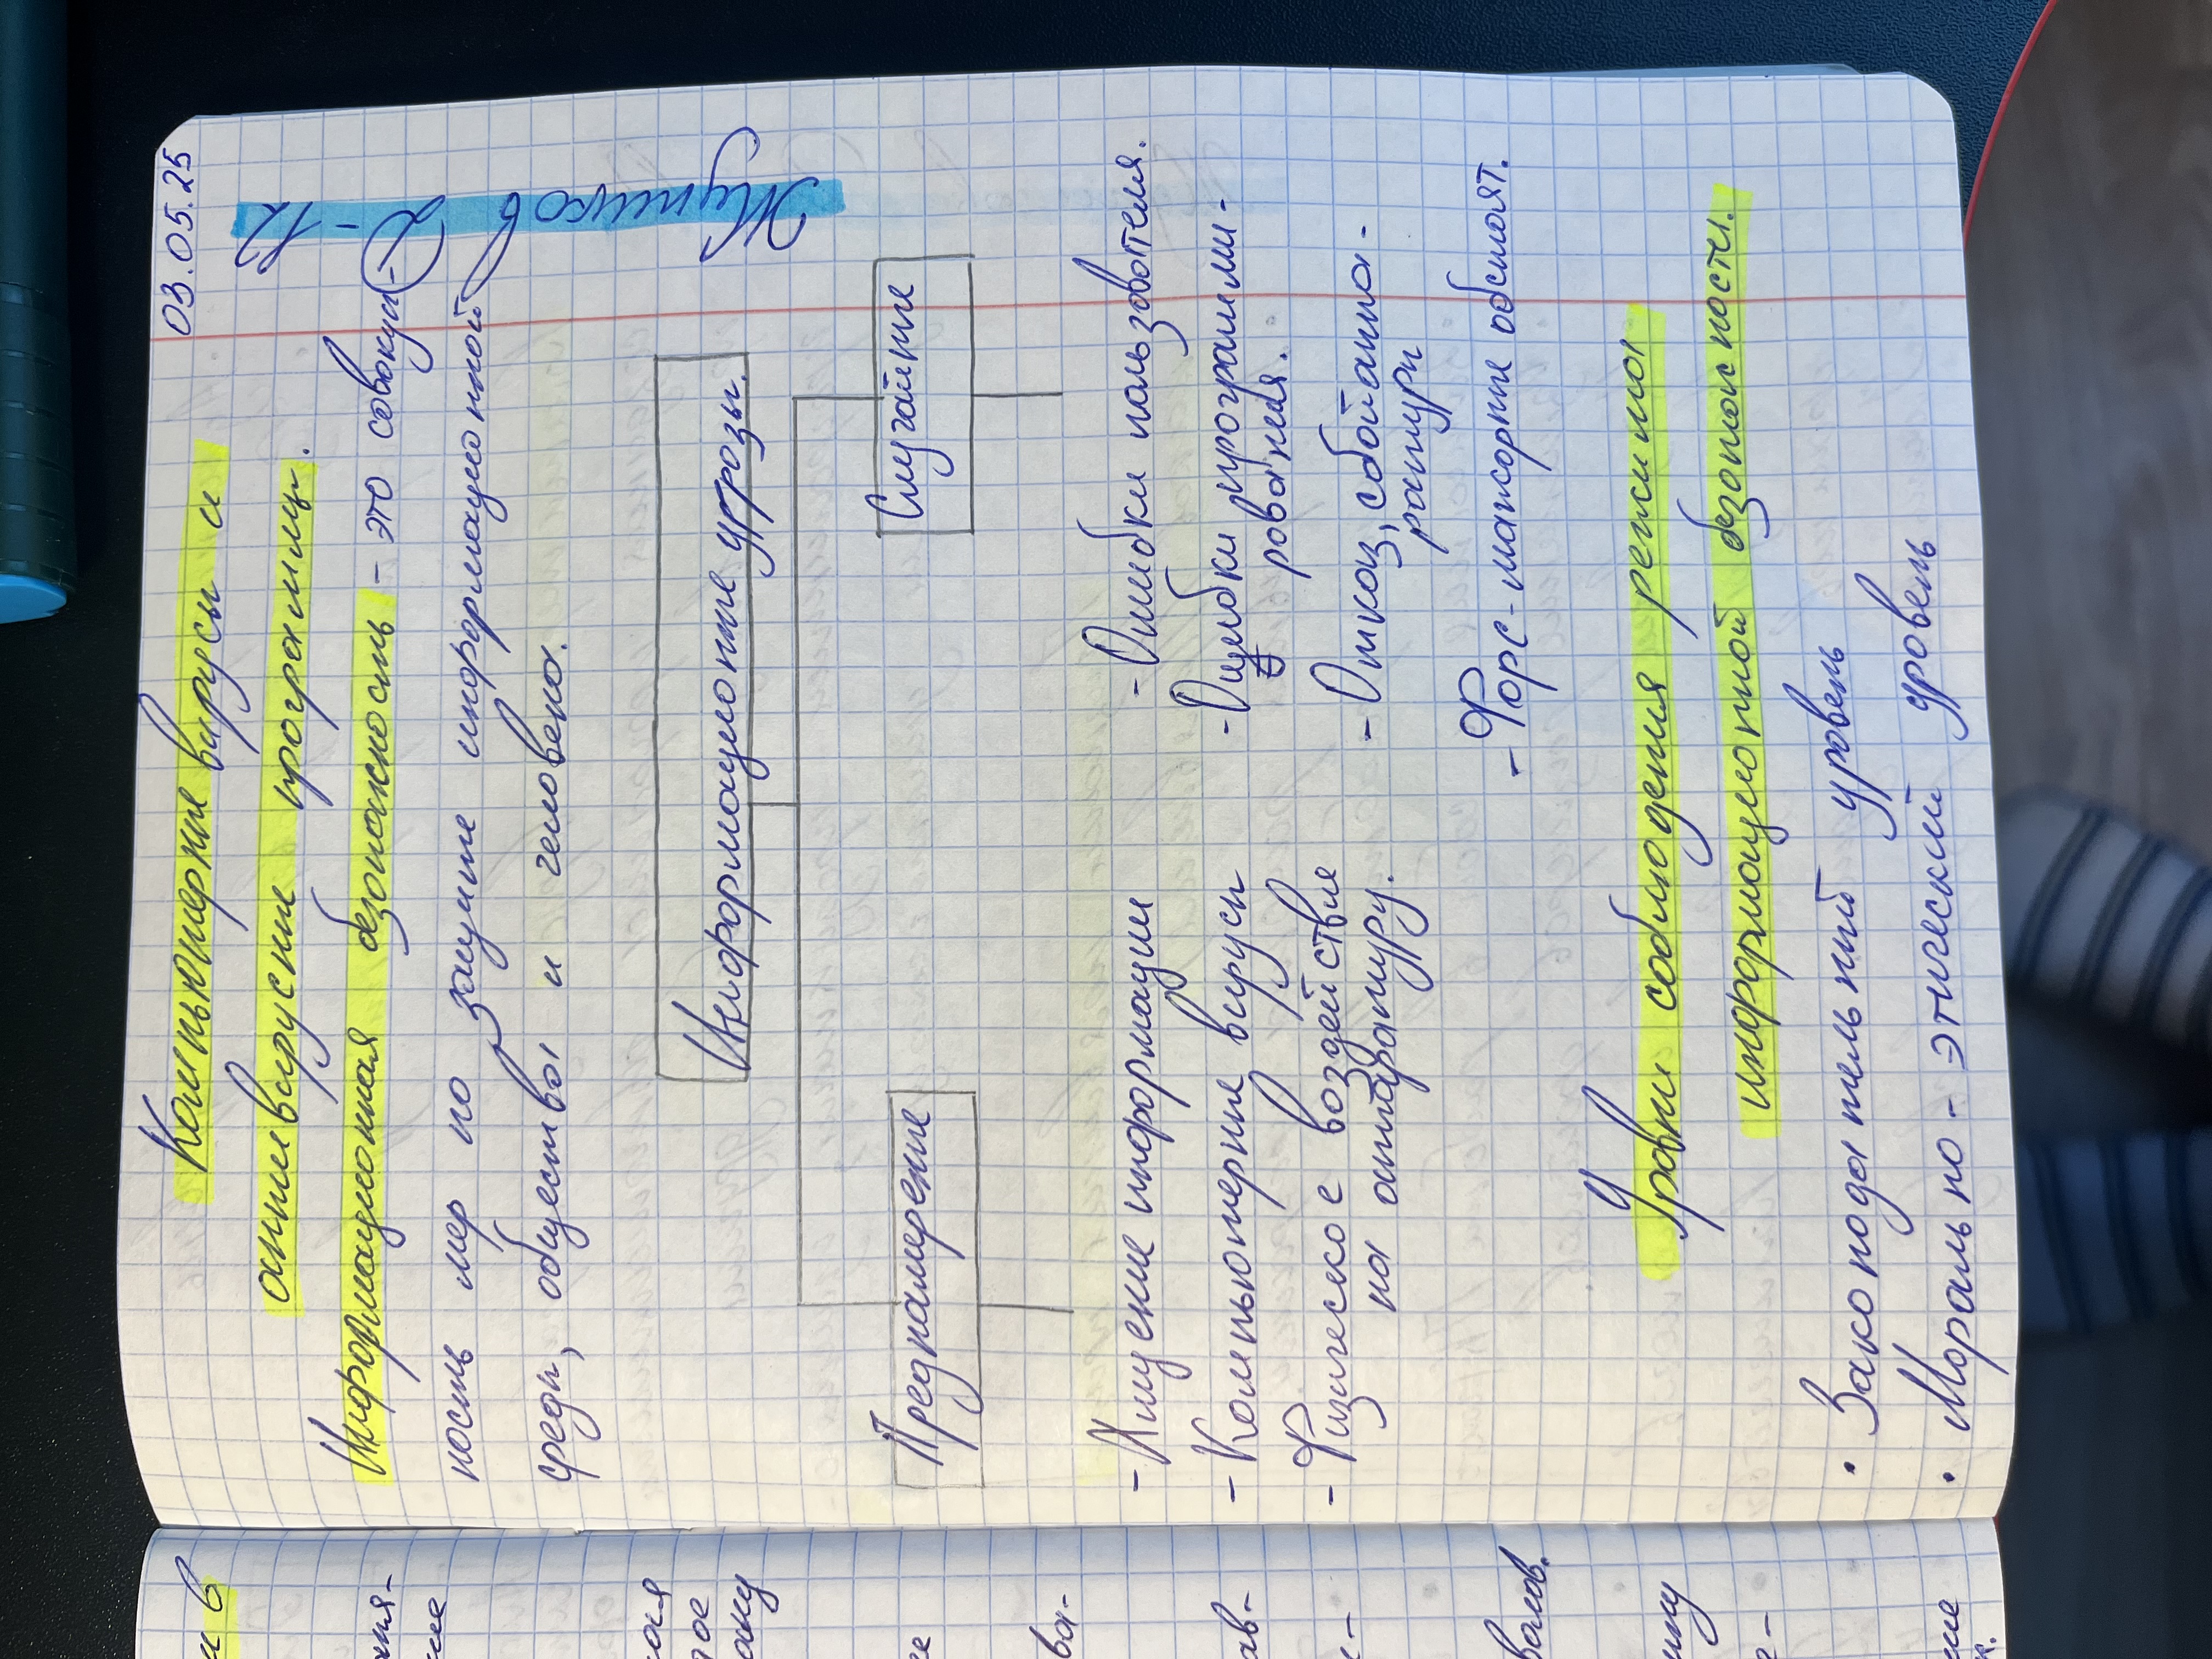 03.05.25
Компьютерные вирусы и
антивирусные программы.
Информационная безопасность - это совокуп-
ность мер по защите информационной
среды, общества и человека.
Жупиков Д-12
Информационные угрозы.
Преднамерение
Случайные
- Хищение информации
- Компьютерные вирусы
- Физическое воздействия
на аппаратуру.
- Ошибки пользователя.
- Ошибки программи-
рования.
- Отказ, сбой аппа-
ратуры
- Форс-мажорные обстоят.
Уровни соблюдения режима
информационной безопасности.
• Законодательный уровень
• Морально-этический уровень
и в
ния-
ная
кое
ва-
ав-
валов.